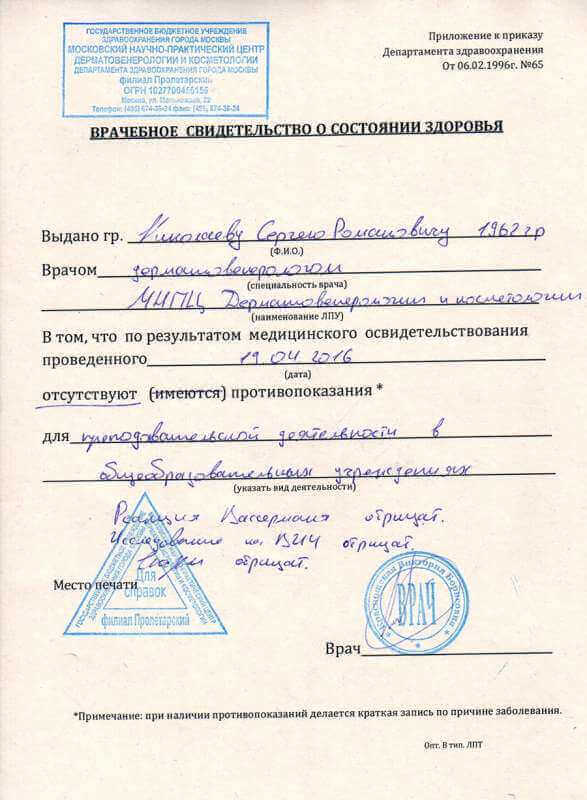 ГОСУДАРСТВЕННОЕ БЮДЖЕТНОЕ УЧРЕЖДЕНИЕ
ЗДРАВООХРАНЕНИЯ ГОРОДА МОСКВЫ
МОСКОВСКИЙ НАУЧНО-ПРАКТИЧЕСКИЙ ЦЕНТР
ДЕРМАТОВЕНЕРОЛОГИИ И КОСМЕТОЛОГИИ
ДЕПАРТАМЕНТА ЗДРАВООХРАНЕНИЯ ГОРОДА МОСКВЫ
филиал Пролетарский
ОГРН
Москва, ул.
Телефон:
Приложение к приказу
Департамента здравоохранения
От 06.02.1996г. №65
ВРАЧЕБНОЕ СВИДЕТЕЛЬСТВО О СОСТОЯНИИ ЗДОРОВЬЯ
Выдано гр. Николаеву Сергею Романовичу 1962 гр
(Ф.И.О.)
Врачом дерматовенерологом
(специальность врача)
МНПЦ Дерматовенерологии и косметологии
(наименование ЛПУ)
В том, что по результатом медицинского освидетельствования
проведенного 19 04 2016
(дата)
отсутствуют (имеются) противопоказания *
для преподавательской деятельности в
общеобразовательных учреждениях
(указать вид деятельности)
Реакция Вассермана отрицат.
Исследование на ВИЧ отрицат.
отрицат.
Место печати
Для
справок
филиал Пролетарский
ВРАЧ
Врач
*Примечание: при наличии противопоказаний делается краткая запись по причине заболевания.
Опт. В тип. ЛПТ